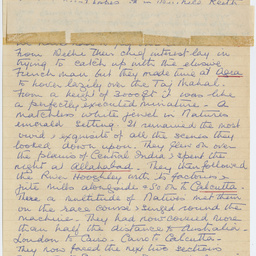 from Delhi their chief interest lay in
trying to catch up with the elusive
Frenchman but they made time at Agra
to hover lazily over the Taj Mahal.
From a height of 3000ft it was like
a perfectly executed miniature - A
matchless white jewel in Natures
emerald setting. It remained the most
vivid & exquisite of all the scenes they
looked down upon. They flew on over
the plains of Central India & spent the
night at Allahabad. They then followed
the River Hooghley with its factories &
jute mills alongside & so on to Calcutta.
Here a multitude of Natives met them
on the race course & surged round the
machine. They had now covered more
than half the distance to Australia.
London to Cairo - Cairo to Calcutta -
They now faced the next two sections